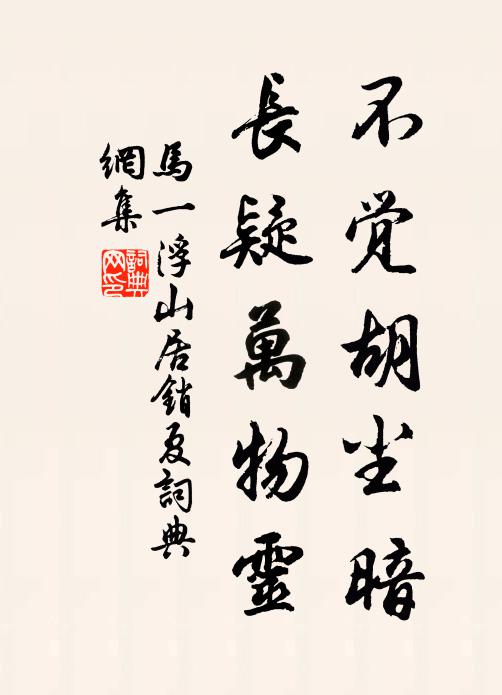 不觉胡尘暗
長疑萬物靈
馬一浮山居銷夏詞典
網集
詞典网印